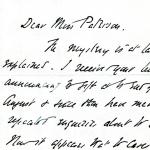 Dear Miss Paterson.
The mystery is at la
explained. I receive your le
announcing the gift at
August & since then have made
repeated enquiries about it
Now it appears that the Care